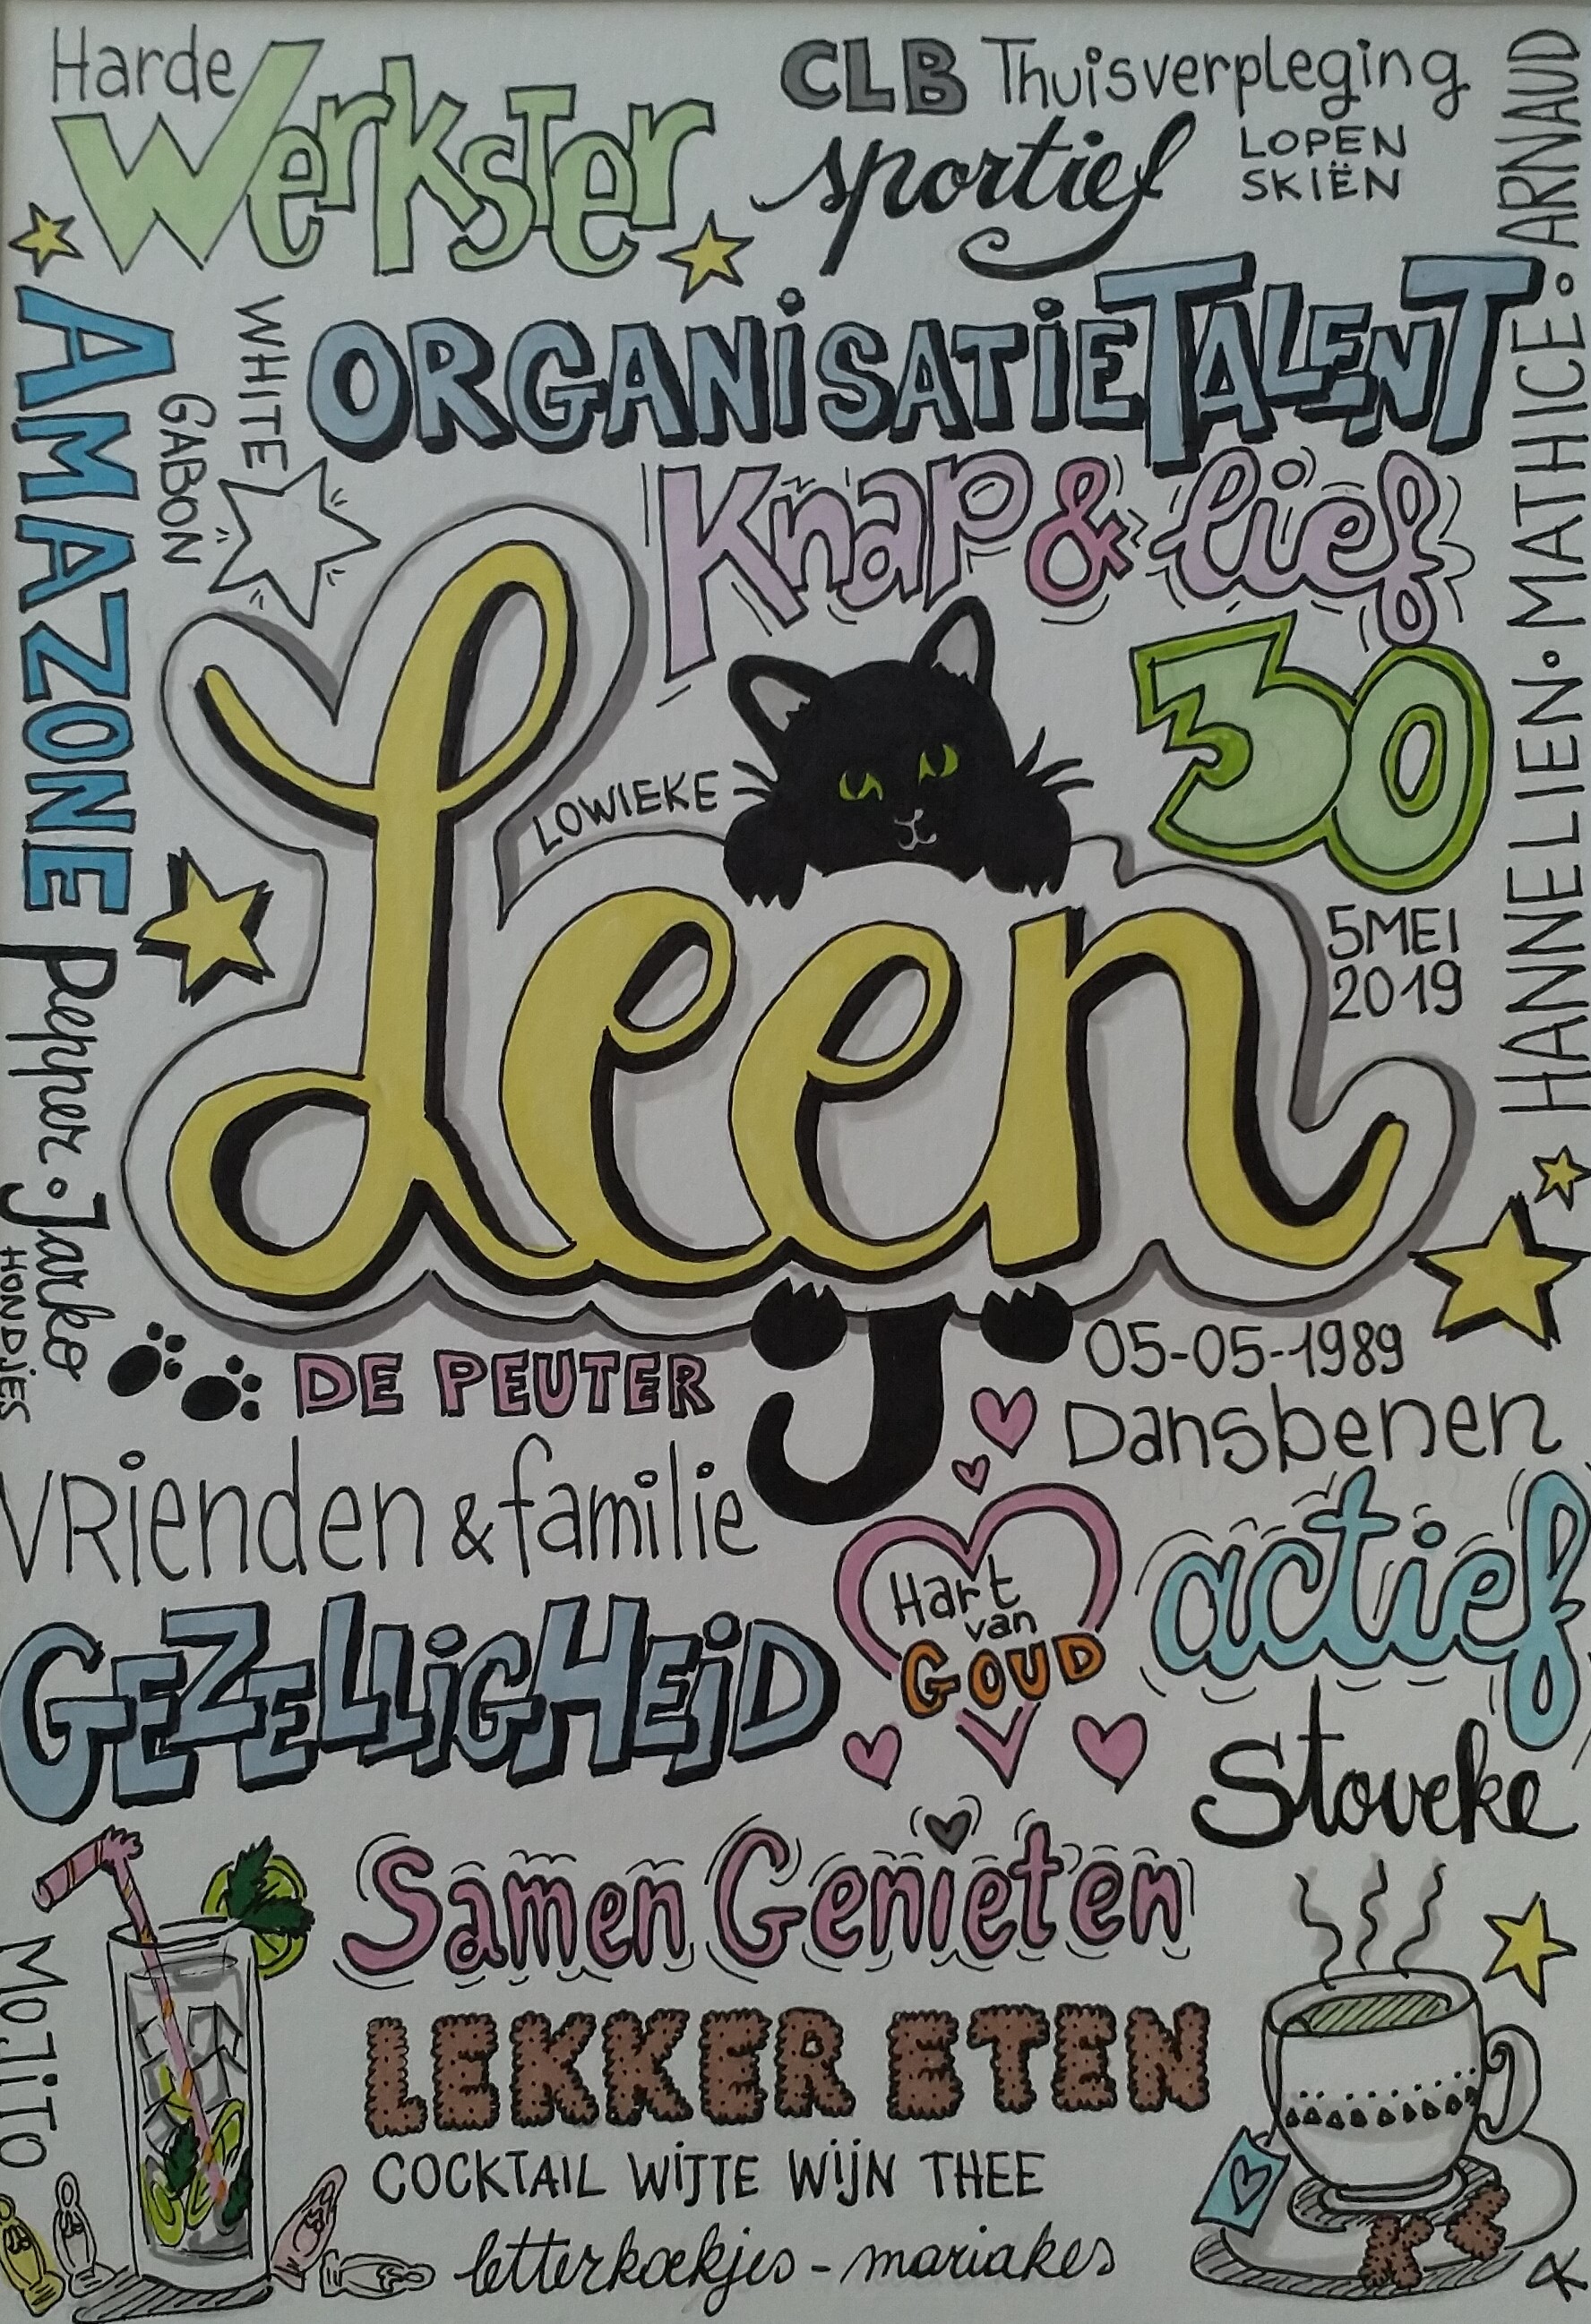 Harde
Werkster
CLB Thuisverpleging
sportief
LOPEN
SKIËN
HANNELIEN • MATHICE • ARNAUD
AMAZONE
WHITE
GABON
ORGANISATIETALENT
Knap & lief
30
LOWIEKE
Leen
5 MEI
2019
Pepper • Jarko
HONDJES
DE PEUTER
05-05-1989
Dansbenen
VRienden & familie
actief
Hart
van
GOUD
GEZELLIGHEID
Stoveke
Samen Genieten
MOJITO
LEKKER ETEN
COCKTAIL WITTE WIJN THEE
letterkoekjes - mariakes